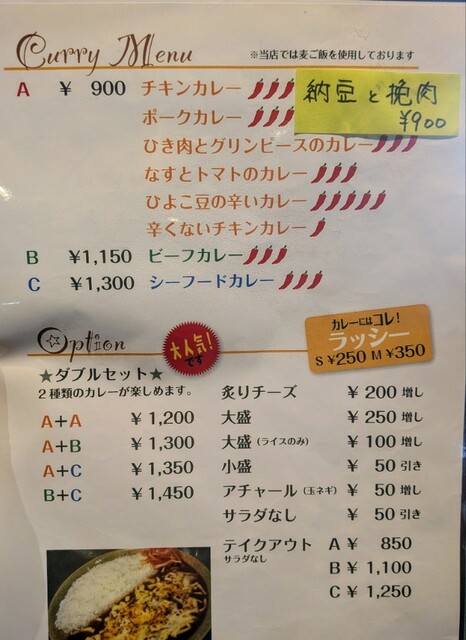 Curry Menu
※当店では麦ご飯を使用しております
A ¥ 900 チキンカレー
ポークカレー
納豆と挽肉
¥900
ひき肉とグリンピースのカレー
なすとトマトのカレー
ひよこ豆の辛いカレー
辛くないチキンカレー
B ¥1,150 ビーフカレー
C ¥1,300 シーフードカレー
カレーにはコレ!
ラッシー
S ¥250 M ¥350
Option
大人気!
です
★ダブルセット★
2種類のカレーが楽しめます。
A+A ¥1,200
A+B ¥1,300
A+C ¥1,350
B+C ¥1,450
炙りチーズ ¥ 200 増し
大盛 ¥ 250 増し
大盛(ライスのみ) ¥ 100 増し
小盛 ¥ 50 引き
アチャール(玉ネギ) ¥ 50 増し
サラダなし ¥ 50 引き
テイクアウト A ¥ 850
サラダなし
B ¥ 1,100
C ¥ 1,250